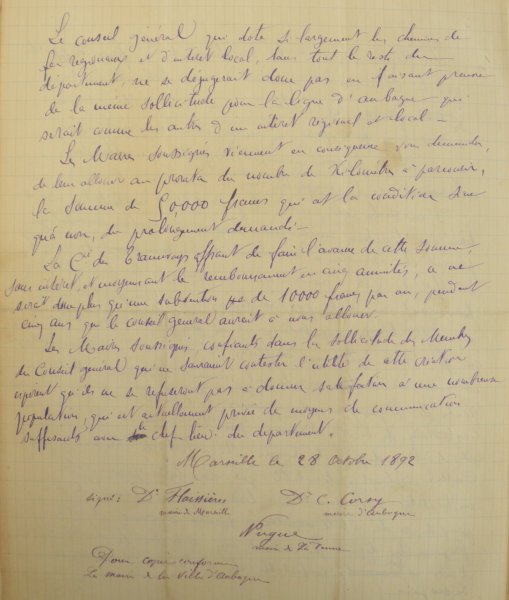 Le conseil général qui dote si largement les chemins de
fer regionaux et d'interet local, dans tout le reste du
département, ne se dejugerait donc pas en faisant preuve
de la même sollicitude pour la ligne d'aubagne qui
serait comme les autres d'un interet regional et local -
Les Maires soussignés viennent en consequence vous demander,
de leur allouer au prorata du nombre de Kilometres à parcourir,
la somme de 50,000 francs qui est la condition sine
quâ non, du prolongement demandé -
La Cie des Tramways offrant de faire l'avance de cette somme,
sans interêt, et moyennant le remboursement en cinq annuités, ce ne
serait donc plus qu'une subvention de 10000 francs par an, pendant
cinq ans que le conseil general aurait à nous allouer.
Les Maires soussignés, confiants dans la sollicitude des Membres
du Conseil general qui ne sauraient contester l'utilité de cette création
esperent qu'ils ne se refuseront pas à donner satisfaction à une nombreuse
population, qui est actuellement privée de moyens de communication
suffisants avec le chef lieu du departement.
Marseille le 28 Octobre 1892
signé: Dr Flaissières
maire de Marseille
Dr C. Corsy
maire d'aubagne
maire de La Penne
Pour copie conforme
Le maire de la Ville d'Aubagne